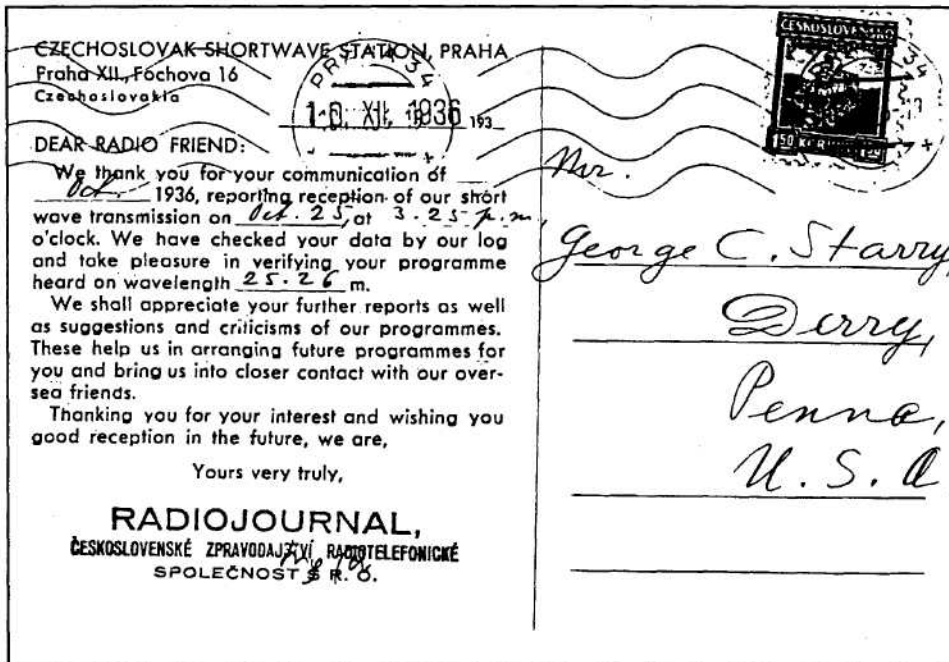 CZECHOSLOVAK SHORTWAVE STATION, PRAHA
Praha XII., Fochova 16
Czechoslovakia
PRAHA 34
10. XII. 1936
193
DEAR RADIO FRIEND:
We thank you for your communication of
Oct. 1936, reporting reception of our short
wave transmission on Oct. 25, at 3.25 p.m.,
o'clock. We have checked your data by our log
and take pleasure in verifying your programme
heard on wavelength 25.26 m.
We shall appreciate your further reports as well
as suggestions and criticisms of our programmes.
These help us in arranging future programmes for
you and bring us into closer contact with our over-
sea friends.
Thanking you for your interest and wishing you
good reception in the future, we are,
Yours very truly,
RADIOJOURNAL,
ČESKOSLOVENSKÉ ZPRAVODAJSTVÍ RADIOTELEFONICKÉ
SPOLEČNOST S R. O.
ČESKOSLOVENSKO
1.50
34
Mr.
George C. Starry,
Derry,
Penna,
U. S. A